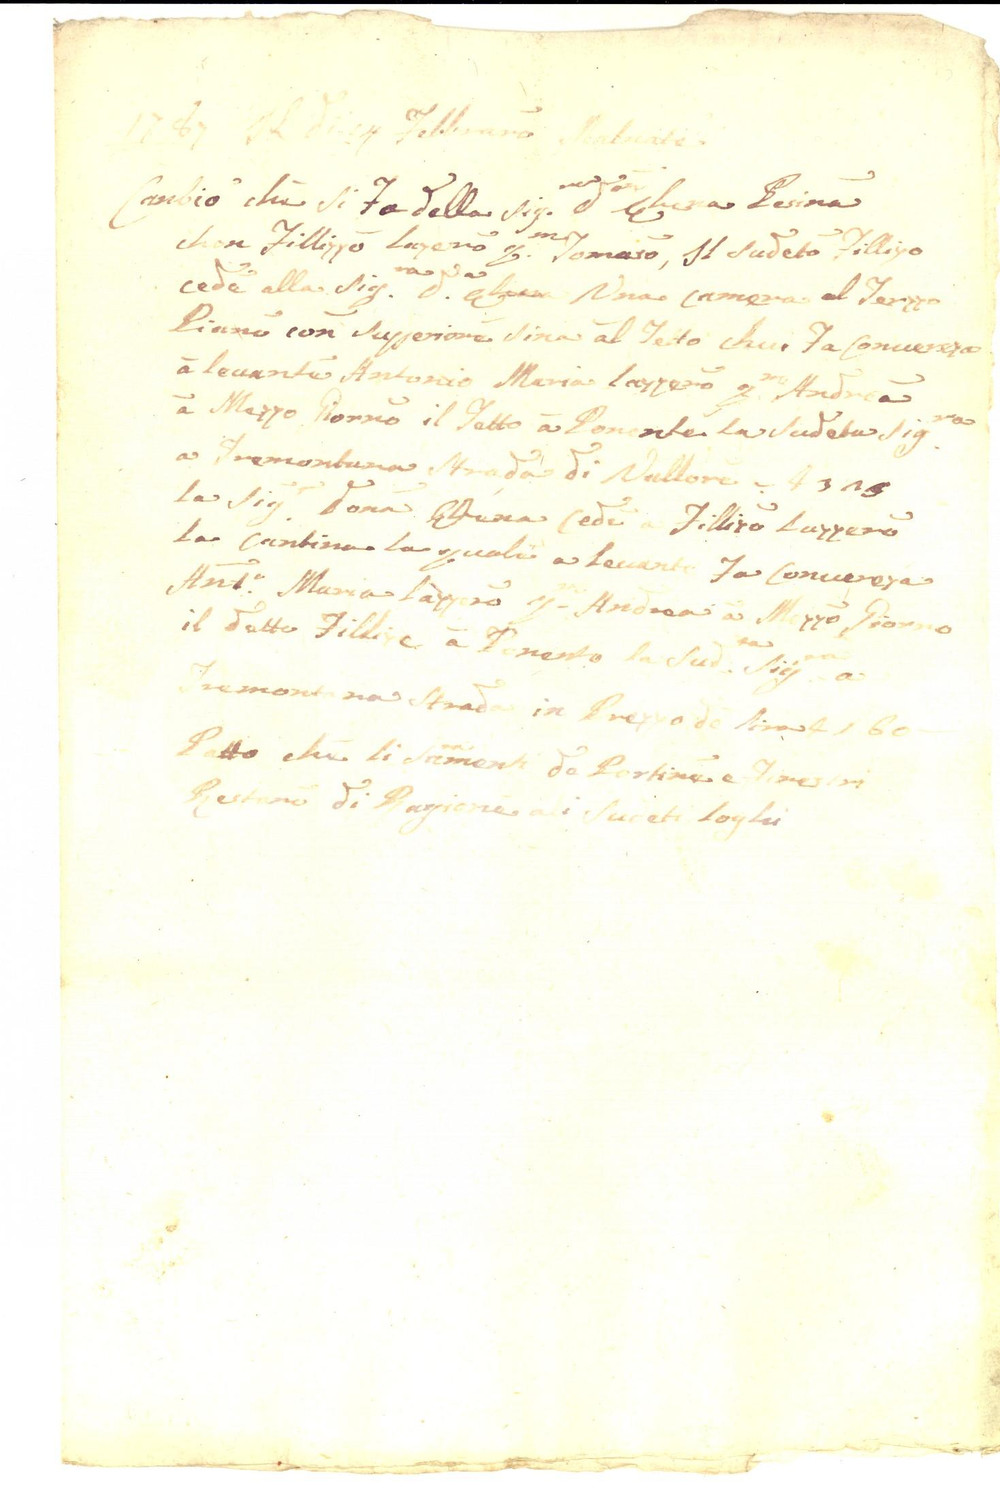 1787 Il di 14 Febbraro
Canbio che si Fa della Sig.ra Pesina
chon Fillippo Lazero q.m Tomaso, Il sudeto Fillipo
cede alla Sig.ra d.a Una camera al Terzzo
Piano con Superiore sina al Tetto che Fa Convereza
à levante Antonio Maria Lazzero q.m Andrea
à Mezzo Giorno il Tetto à Ponente la sudeta Sig.ra
a Tremontana Strada di Vallore
la Sig.ra Dona cede a Fillipo Lazzero
la Cantina la quale a levante Fa Convereza
Ant.o Maria Lazzero q.m Andrea à Mezzo Giorno
il detto Fillipe à Ponente la Sud.ta Sig.ra a
Tremontana Strada in Prezzo de lire 160
Patto che li de Portine e Finestri
Restano di Ragione ali Sudeti loghi